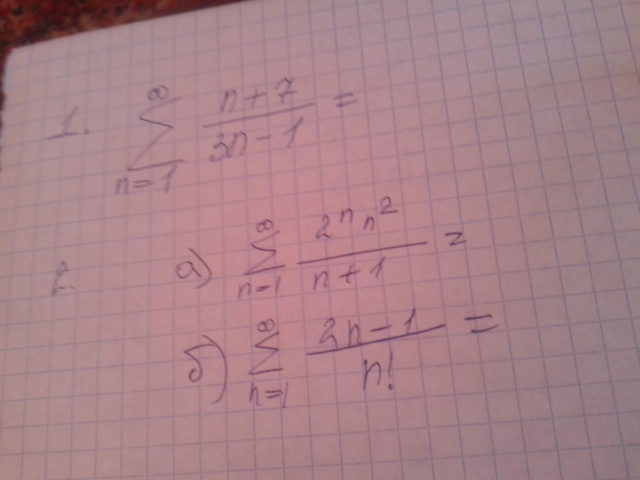 1. ∞ ∑ n=1 n+7 / 3n-1 =
2. а) ∞ ∑ n=1 2ⁿn² / n+1 =
б) ∞ ∑ n=1 2n-1 / n! =